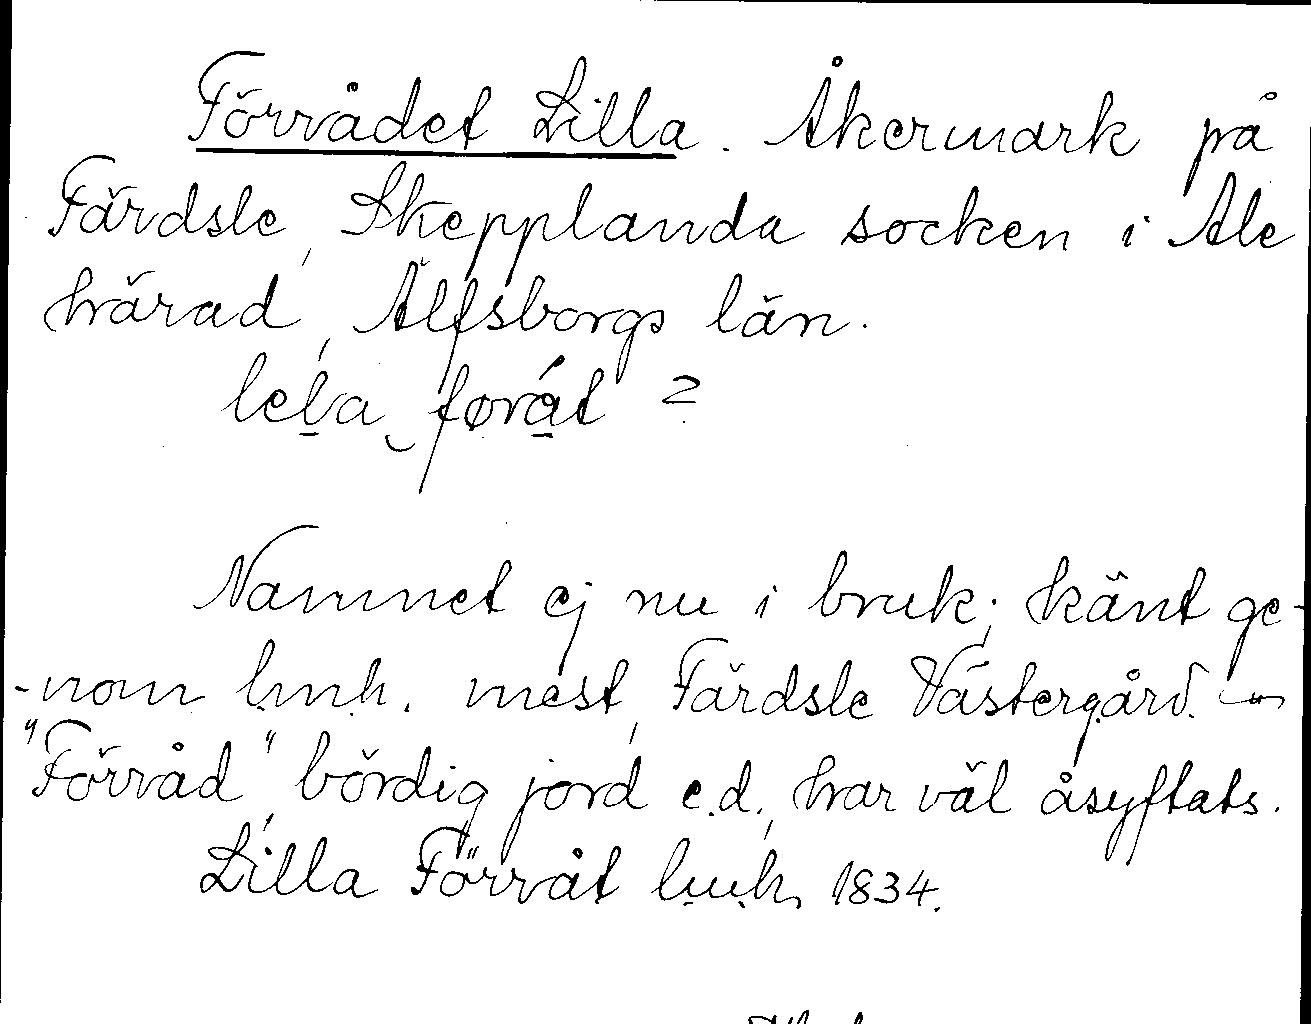 Förrådet Lilla. Åkermark på
Färdsle, Skepplanda socken i Ale
härad, Älfsborgs län.
lela föråt 2

Namnet ej nu i bruk; känt ge-
-nom lmh. mest, Färdsle Västergård.
"Förråd", bördig jord e.d., har väl åsyftats.
Lilla Förråt lmh, 1834.